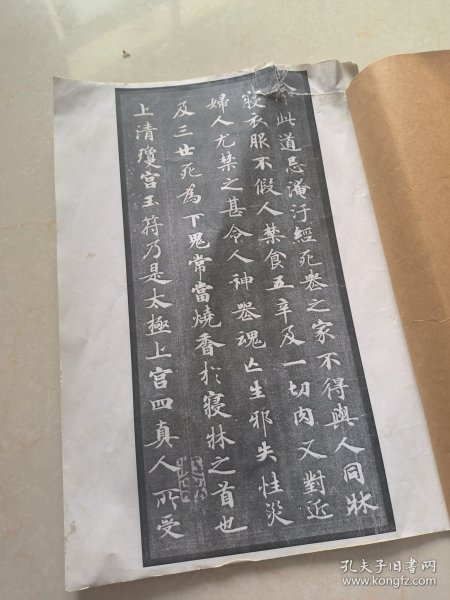 此道忌淹汙經死喪之家不得與人同牀
寢衣服不假人禁食五辛及一切肉又對近
婦人尤禁之甚令人神喪魂亡生邪失性災
及三世死為下鬼常當燒香於寢牀之首也
上清瓊宮玉符乃是太極上宮四真人所受
孔夫子旧书网
www.kongfz.com